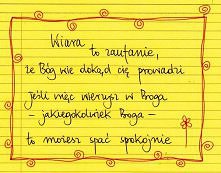 Wiara
to zaufanie,
że Bóg wie dokąd cię prowadzi
jeśli więc wierzysz w Boga
- jakiegokolwiek Boga -
to możesz spać spokojnie